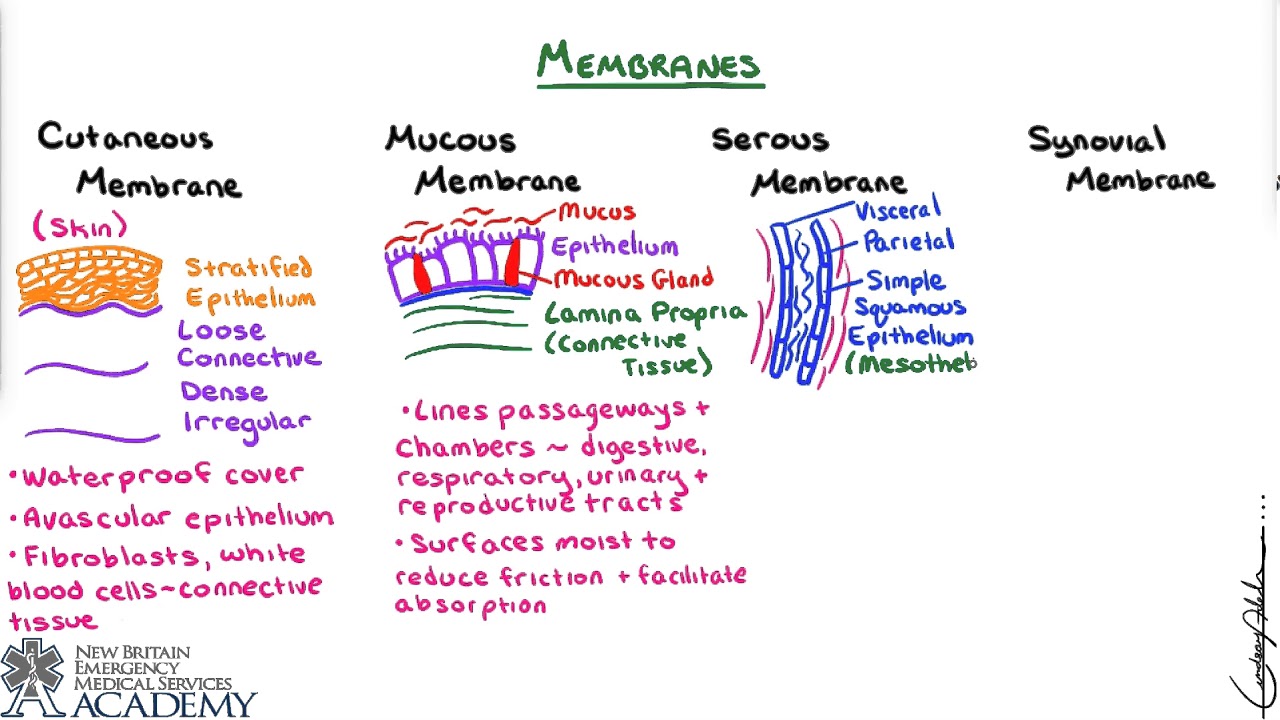 MEMBRANES
Cutaneous
Membrane
(Skin)
Stratified
Epithelium
Loose
Connective
Dense
Irregular
•Waterproof cover
•Avascular epithelium
•Fibroblasts, white
blood cells~connective
tissue
Mucous
Membrane
Mucus
Epithelium
Mucous Gland
Lamina Propria
(Connective
Tissue)
•Lines passageways +
Chambers ~ digestive,
respiratory, urinary +
reproductive tracts
•Surfaces moist to
reduce friction + facilitate
absorption
Serous
Membrane
Visceral
Parietal
Simple
Squamous
Epithelium
(Mesothel
Synovial
Membrane
NEW BRITAIN
EMERGENCY
MEDICAL SERVICES
ACADEMY